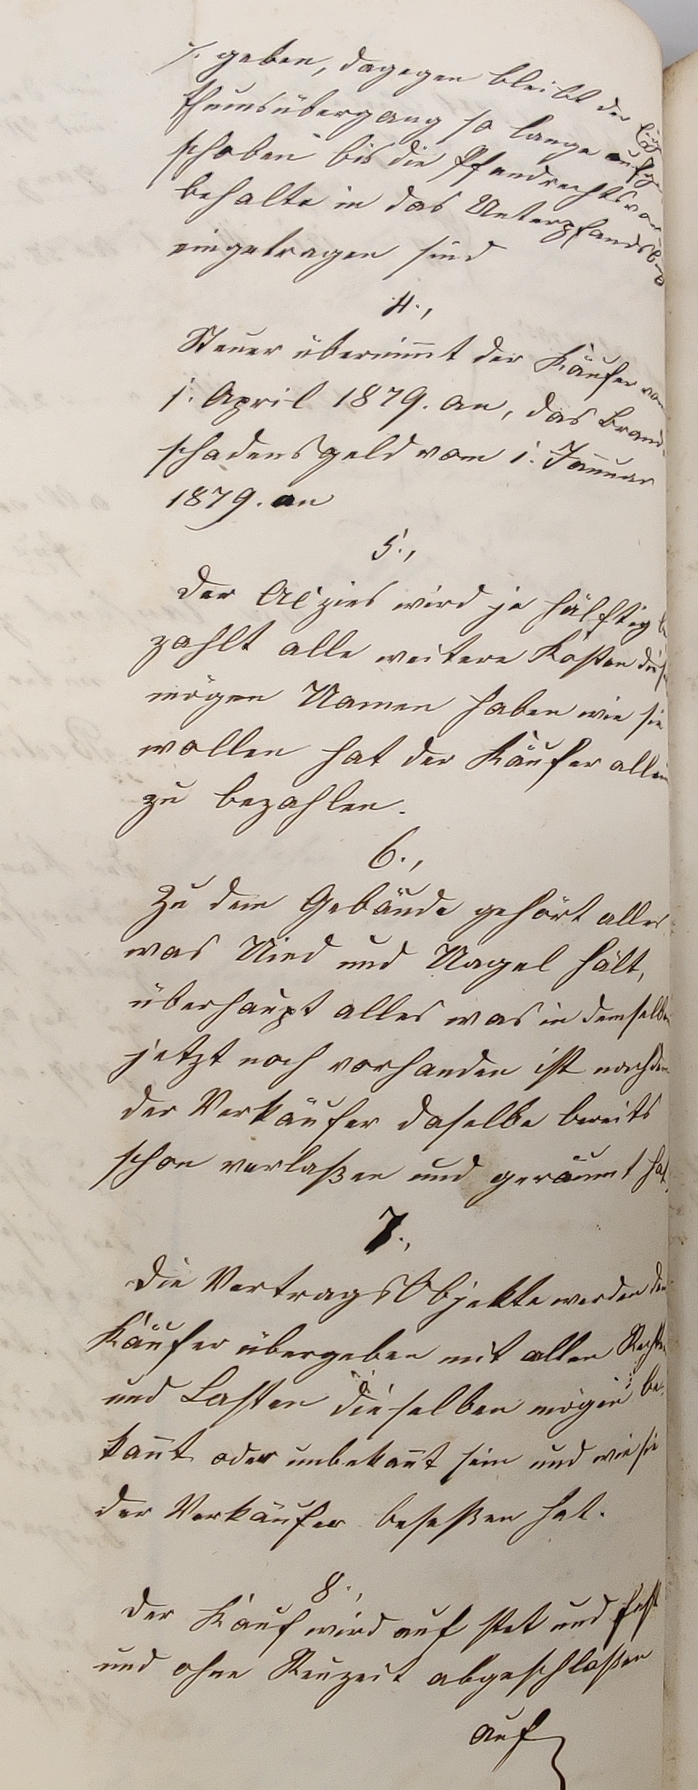 geben, dagegen bleibt der Eigen
thumsübergang so lange aufge
schoben bis die Pfandrechtsvor
behalte in das Unterpfandsbuch
eingetragen sind
4.,
Steuer übernimmt der Käufer vom
1. April 1879. an, das Brand
schadensgeld vom 1. Januar
1879. an
5.,
Der Aczies wird je hälftig be
zahlt alle weitere Kosten diese
mögen Namen haben wie sie
wollen hat der Käufer allein
zu bezahlen.
6.,
Zu dem Gebäude gehört alles
was Nied und Nagel hält,
überhaupt alles was in demselben
jetzt noch vorhanden ist nachdem
der Verkäufer daselbe bereits
schon verlaßen und geräumt hat.
7.,
Die Vertrags Objekte werden dem
Käufer übergeben mit allen Rechten
und Lasten dieselben mögen be
kannt oder unbekannt sein und wie sie
der Verkäufer beseßen hat.
8.,
Der Kauf wird auf stet und fest
und ohne Reuzeit abgeschloßen
auf